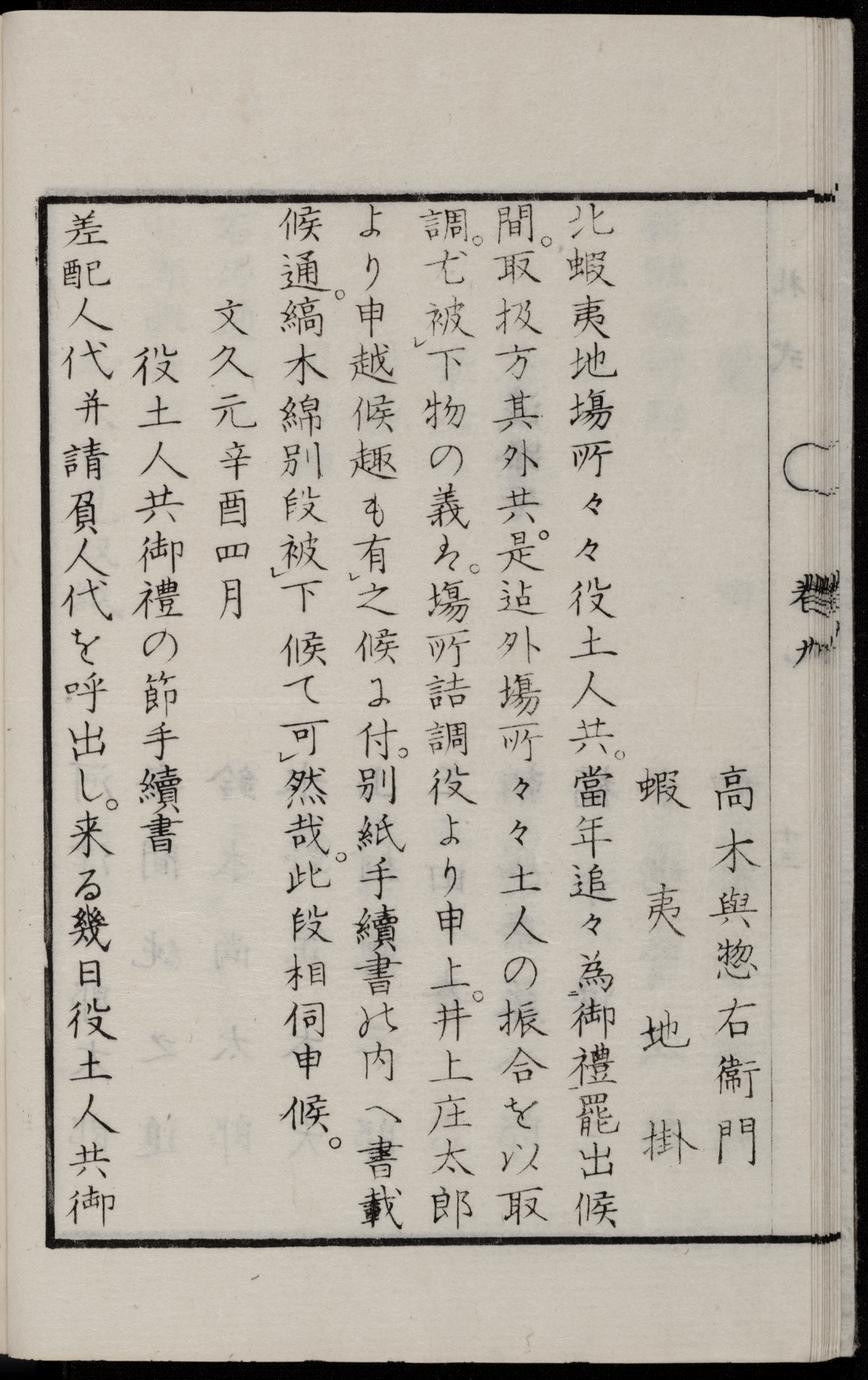 高木與惣右衞門
蝦夷地掛
北蝦夷地塲所々々役土人共。當年追々為御禮罷出候
間。取扱方其外共。是迠外塲所々々土人の振合を以取
調。尤被下物の義は。塲所詰調役より申上。井上庄太郎
より申越候趣も有之候に付。別紙手續書の内へ書載
候通。縞木綿別段被下候て可然哉。此段相伺申候。
文久元辛酉四月
役土人共御禮の節手續書
差配人代并請負人代を呼出し。来る幾日役土人共御